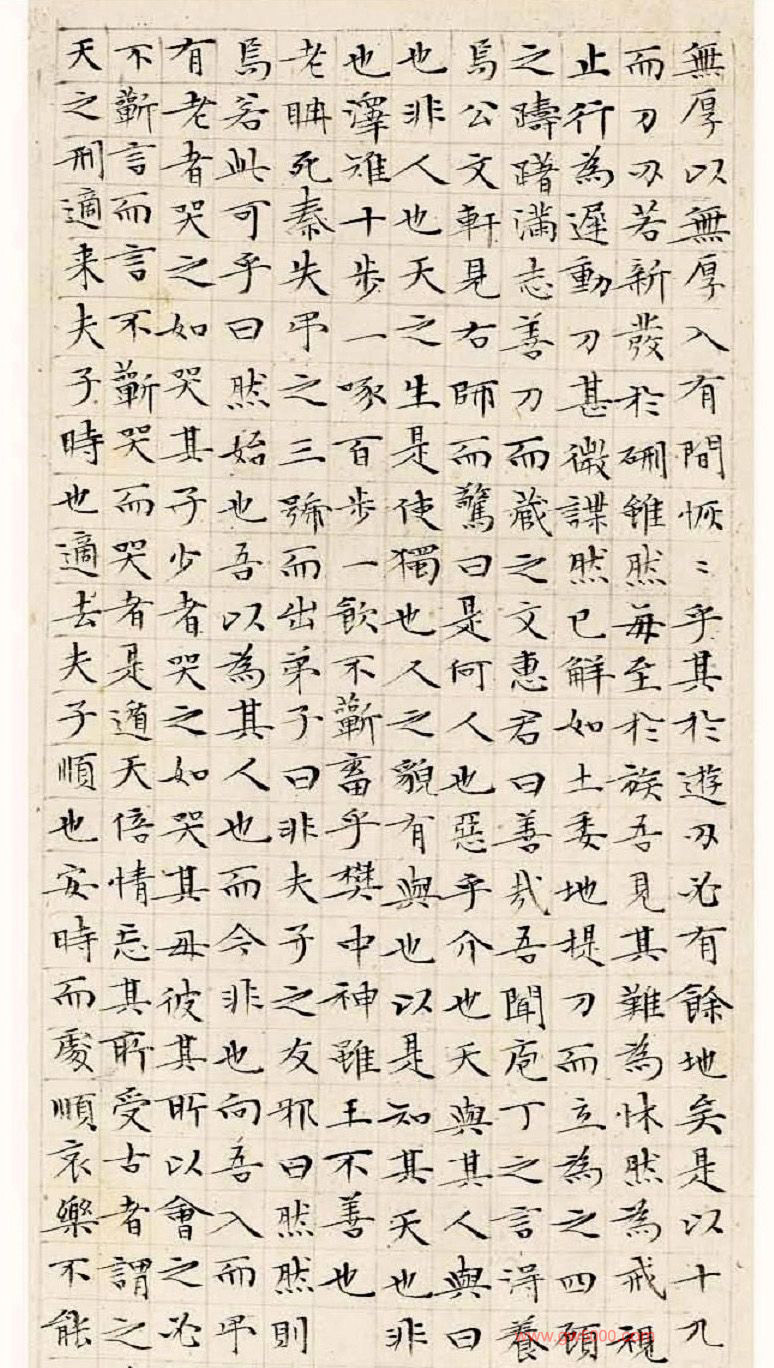 無厚以無厚入有間恢〻乎其於遊刃必有餘地矣是以十九
而刀刃若新發於硎雖然每至於族吾見其難為怵然為戒視
止行為遲動刀甚微謋然已解如土委地提刀而立為之四顧
之躊躇滿志善刀而藏之文惠君曰善哉吾聞庖丁之言得養
焉公文軒見右師而驚曰是何人也惡乎介也天與其人與曰
也非人也天之生是使獨也人之貌有與也以是知其天也非
也澤雉十步一啄百步一飲不蘄畜乎樊中神雖王不善也
老聃死秦失弔之三號而出弟子曰非夫子之友邪曰然然則
焉若此可乎曰然始也吾以為其人也而今非也向吾入而弔
有老者哭之如哭其子少者哭之如哭其母彼其所以會之必
不蘄言而言不蘄哭而哭者是遁天倍情忘其所受古者謂之
天之刑適来夫子時也適去夫子順也安時而處順哀樂不能